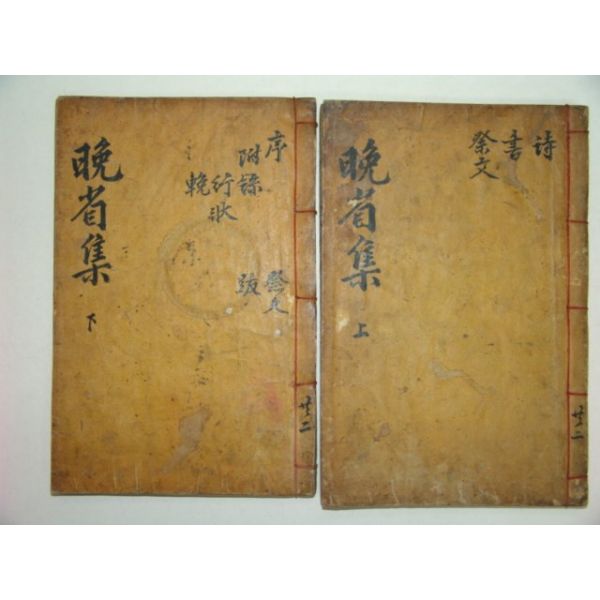 晚省集 上
詩
書
祭文
共二
晚省集 下
序 祭文
附錄 跋
行狀
輓
共二